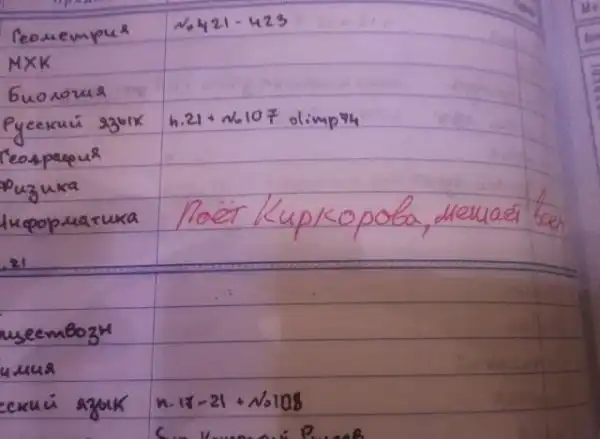 Геометрия №421-423
МХК
Биология
Русский язык п.21 + №107 olimp74
География
Физика
Информатика Поёт Киркорова, мешает всем
.21
химия
язык п.17-21 + №108